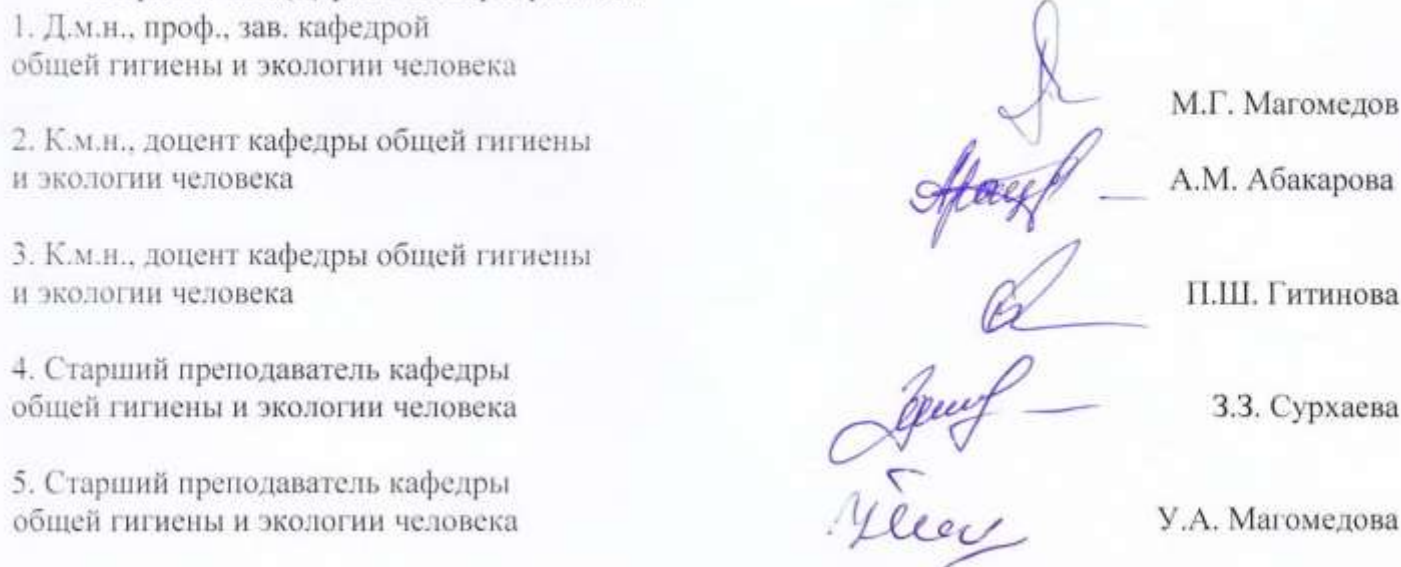 1. Д.м.н., проф., зав. кафедрой
общей гигиены и экологии человека
М.Г. Магомедов
2. К.м.н., доцент кафедры общей гигиены
и экологии человека
А.М. Абакарова
3. К.м.н., доцент кафедры общей гигиены
и экологии человека
П.Ш. Гитинова
4. Старший преподаватель кафедры
общей гигиены и экологии человека
З.З. Сурхаева
5. Старший преподаватель кафедры
общей гигиены и экологии человека
У.А. Магомедова